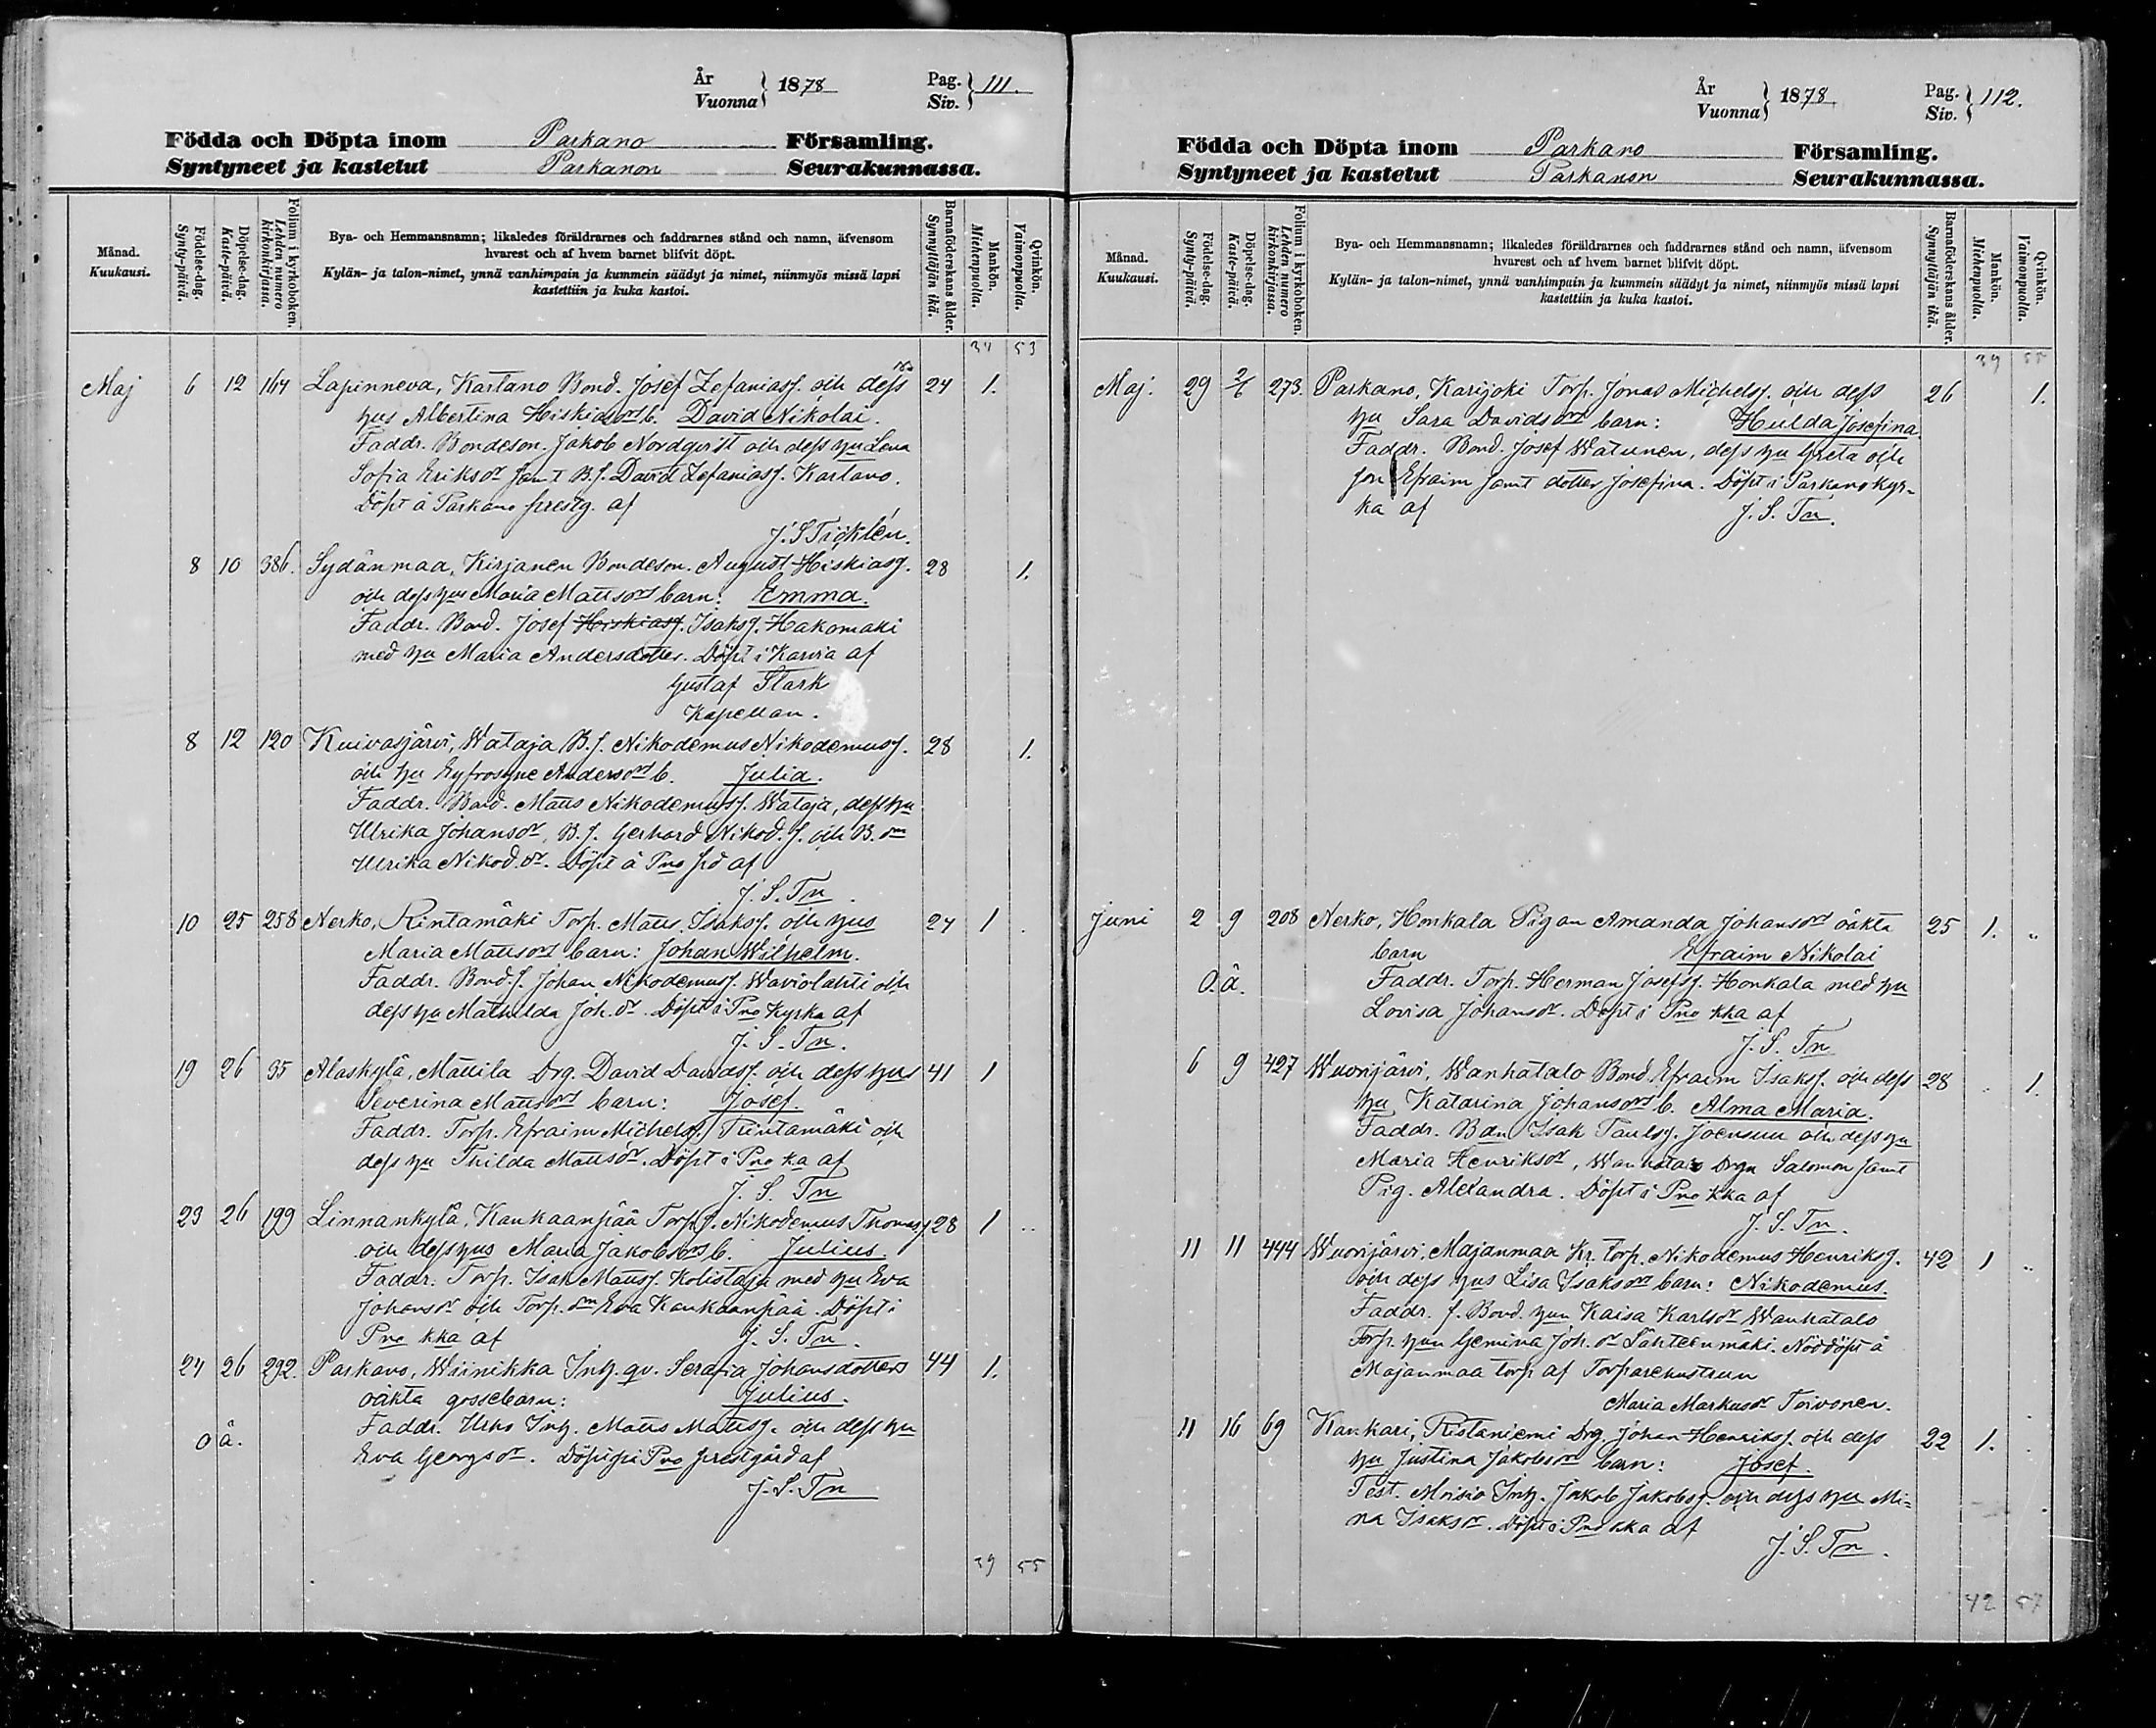 År
Vuonna } 1878
Pag.
Siv. } 111.
Födda och Döpta inom Parkano Församling.
Syntyneet ja kastetut Parkanon Seurakunnassa.
Månad.
Kuukausi.
Födelse-dag.
Synty-päivä.
Döpelse-dag.
Kaste-päivä.
Folium i kyrkoboken.
Lehden numero
kirkonkirjassa.
Bya- och Hemmansnamn; likaledes föräldrarnes och faddrarnes stånd och namn, äfvensom
hvarest och af hvem barnet blifvit döpt.
Kylän- ja talon-nimet, ynnä vanhimpain ja kummein säädyt ja nimet, niinmyös missä lapsi
kastettiin ja kuka kastoi.
Barnaföderskans ålder.
Synnyttäjän ikä.
Mankön.
Miehenpuolla.
Qvinkön.
Vaimonpuolla.
34 53
Maj 6 12 164 Lapinneva, Kartano Bond. Josef Zefaniass. och dess 24 1.
hus Albertina Hiskiasdrs b. David Nikolai.
Faddr. Bondeson. Jakob Nordqvist och dess hu Lena
Sofia Eriksdr samt B.s. David Zefaniass. Kartano.
Döpt å Parkano prestg. af
J. S Ticklén.
8 10 386. Sydänmaa, Kirjanen Bondeson. August Hiskiass. 28 1.
och dess hus Maria Mattsdrs barn: Emma.
Faddr. Bond. Josef Hiskiass. Isakss. Hakomäki
med hu Maria Andersdotter. Döpt i Karvia af
Gustaf Stark
Kapellan.
8 12 120 Kuivasjärvi, Wataja B.s. Nikodemus Nikodemuss. 28 1.
och hu Eyfrosyne Andersdrs b. Julia.
Faddr. Bond. Matts Nikodemuss. Wataja, dess hu
Ulrika Johansdr, B.s. Gerhard Nikod.s. och B.dm
Ulrika Nikod.dr. Döpt å Pno prd af
J. S. Tn.
10 25 258 Nerko, Rintamäki Torp. Matts Isakss. och hus 24 1
Maria Mattsdrs barn: Johan Wilhelm.
Faddr. Bond.s. Johan Nikodemuss. Waviolahti och
dess hu Mathilda Joh.dr. Döpt i Pno Kyrka af
J. S. Tn.
19 26 35 Alaskylä, Mattila Drg. David Davidss. och dess hus 41 1
Severina Mattsdrs barn: Josef.
Faddr. Torp. Efraim Michelss. Rintamäki och
dess hu Thilda Mattsdr. Döpt i Pno ka af
J. S. Tn
23 26 199 Linnankylä, Kankaanpää Torp.s. Nikodemus Thomass. 28 1
och dess hus Maria Jakobsdrs b. Julius.
Faddr. Torp. Isak Mattss. Kolistaja med hu Eva
Johansdr och Torp.dm Eva Kankaanpää. Döpt i
Pno kka af J. S. Tn.
24 26 292. Parkano, Wiinikka Inh. qv. Serafia Johansdotters 44 1.
oäkta gossebarn: Julius.
O ä. Faddr. Urko Inh. Matts Mattss. och dess hu
Eva Georgsdr. Döpt i Pno prestgård af
J. S. Tn
39 55
År
Vuonna } 1878.
Pag.
Siv. } 112.
Födda och Döpta inom Parkano Församling.
Syntyneet ja kastetut Parkanon Seurakunnassa.
Månad.
Kuukausi.
Födelse-dag.
Synty-päivä.
Döpelse-dag.
Kaste-päivä.
Folium i kyrkoboken.
Lehden numero
kirkonkirjassa.
Bya- och Hemmansnamn; likaledes föräldrarnes och faddrarnes stånd och namn, äfvensom
hvarest och af hvem barnet blifvit döpt.
Kylän- ja talon-nimet, ynnä vanhimpain ja kummein säädyt ja nimet, niinmyös missä lapsi
kastettiin ja kuka kastoi.
Barnaföderskans ålder.
Synnyttäjän ikä.
Mankön.
Miehenpuolla.
Qvinkön.
Vaimonpuolla.
39 55
Maj. 29 2/6 273. Parkano, Karijoki Torp. Jonas Michelss. och dess 26 1.
hu Sara Davidsdrs barn: Hulda Josefina.
Faddr. Bond. Josef Watunen, dess hu Greta och
son Efraim samt dotter Josefina. Döpt i Parkano kyr-
ka af J. S. Tn.
Juni 2 9 208 Nerko, Honkala Pigan Amanda Johansdrs oäkta 25 1.
barn Efraim Nikolai
O. ä. Faddr. Torp. Herman Josefss. Honkala med hu
Lovisa Johansdr. Döpt i Pno kka af
J. S. Tn
6 9 427 Wuorijärvi, Wanhatalo Bond. Efraim Isakss. och dess 28 1.
hu Katarina Johansdrs b. Alma Maria.
Faddr. Bdn Isak Paulss. Joensuu och dess hu
Maria Henriksdr, Wanhatalo Drgn Salomon samt
Pig. Alexandra. Döpt i Pno kka af
J. S. Tn.
11 11 444 Wuorijärvi, Majanmaa Kr. torp. Nikodemus Henrikss. 42 1
och dess hus Lisa Isaksdrs barn: Nikodemus.
Faddr. f. Bond. hun Kaisa Karlsdr Wanhatalo
Torp. hun Gemina Joh.dr Lähteenmäki. Nöddöpt å
Majanmaa torp af Torparehustrun
Maria Markusdr Toivonen.
11 16 69 Kankari, Ristaniemi Drg. Johan Henrikss. och dess 22 1.
hu Justina Jakobsdrs barn: Josef.
Test. Moisio Inh. Jakob Jakobss. och dess hu Mi-
na Isaksdr. Döpt i Pno kka af
J. S. Tn.
42 57